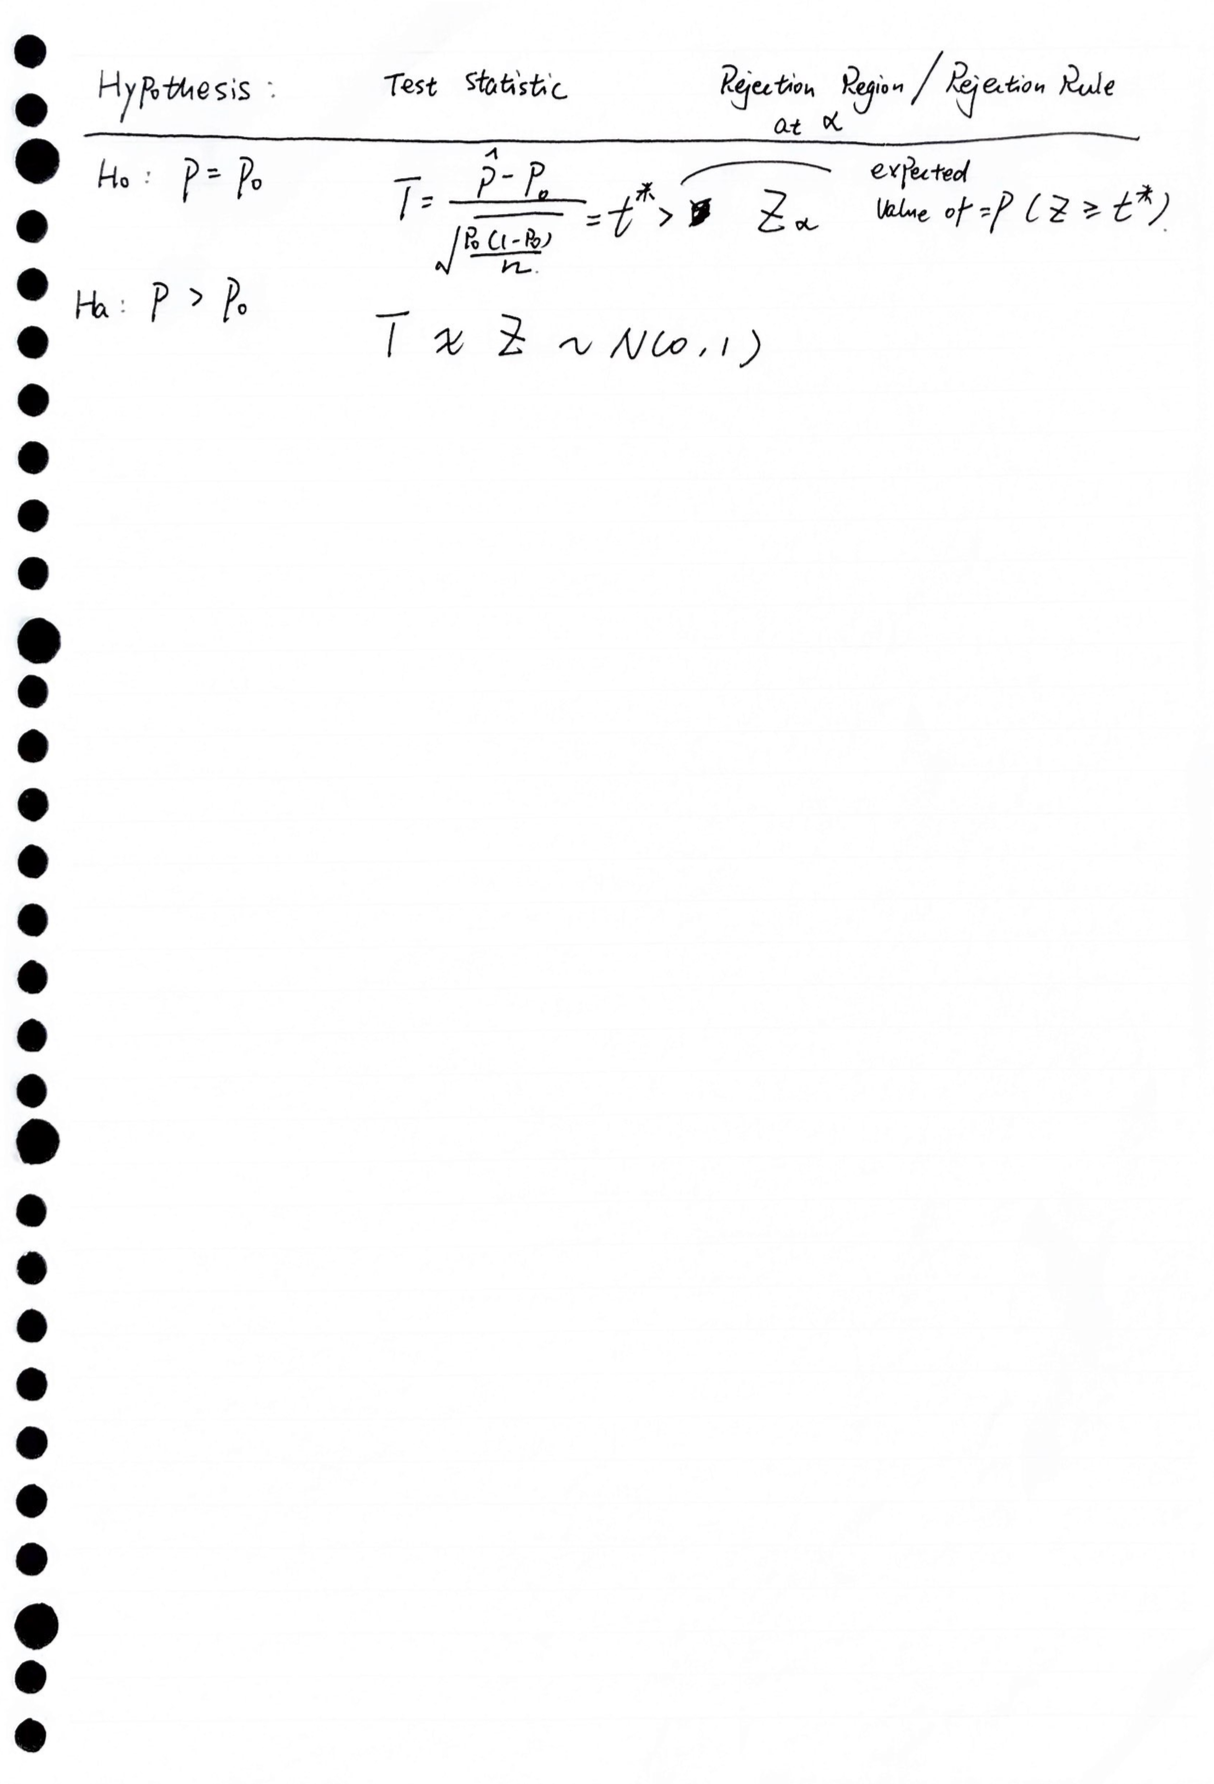 Hypothesis : Test Statistic Rejection Region / Rejection Rule
at α
H₀ : P = P₀ T = (p̂ - P₀) / √(P₀(1-P₀)/n) = t* > Z_α expected
value of = P (Z ≥ t*)
Ha : P > P₀
T ≈ Z ~ N(0,1)